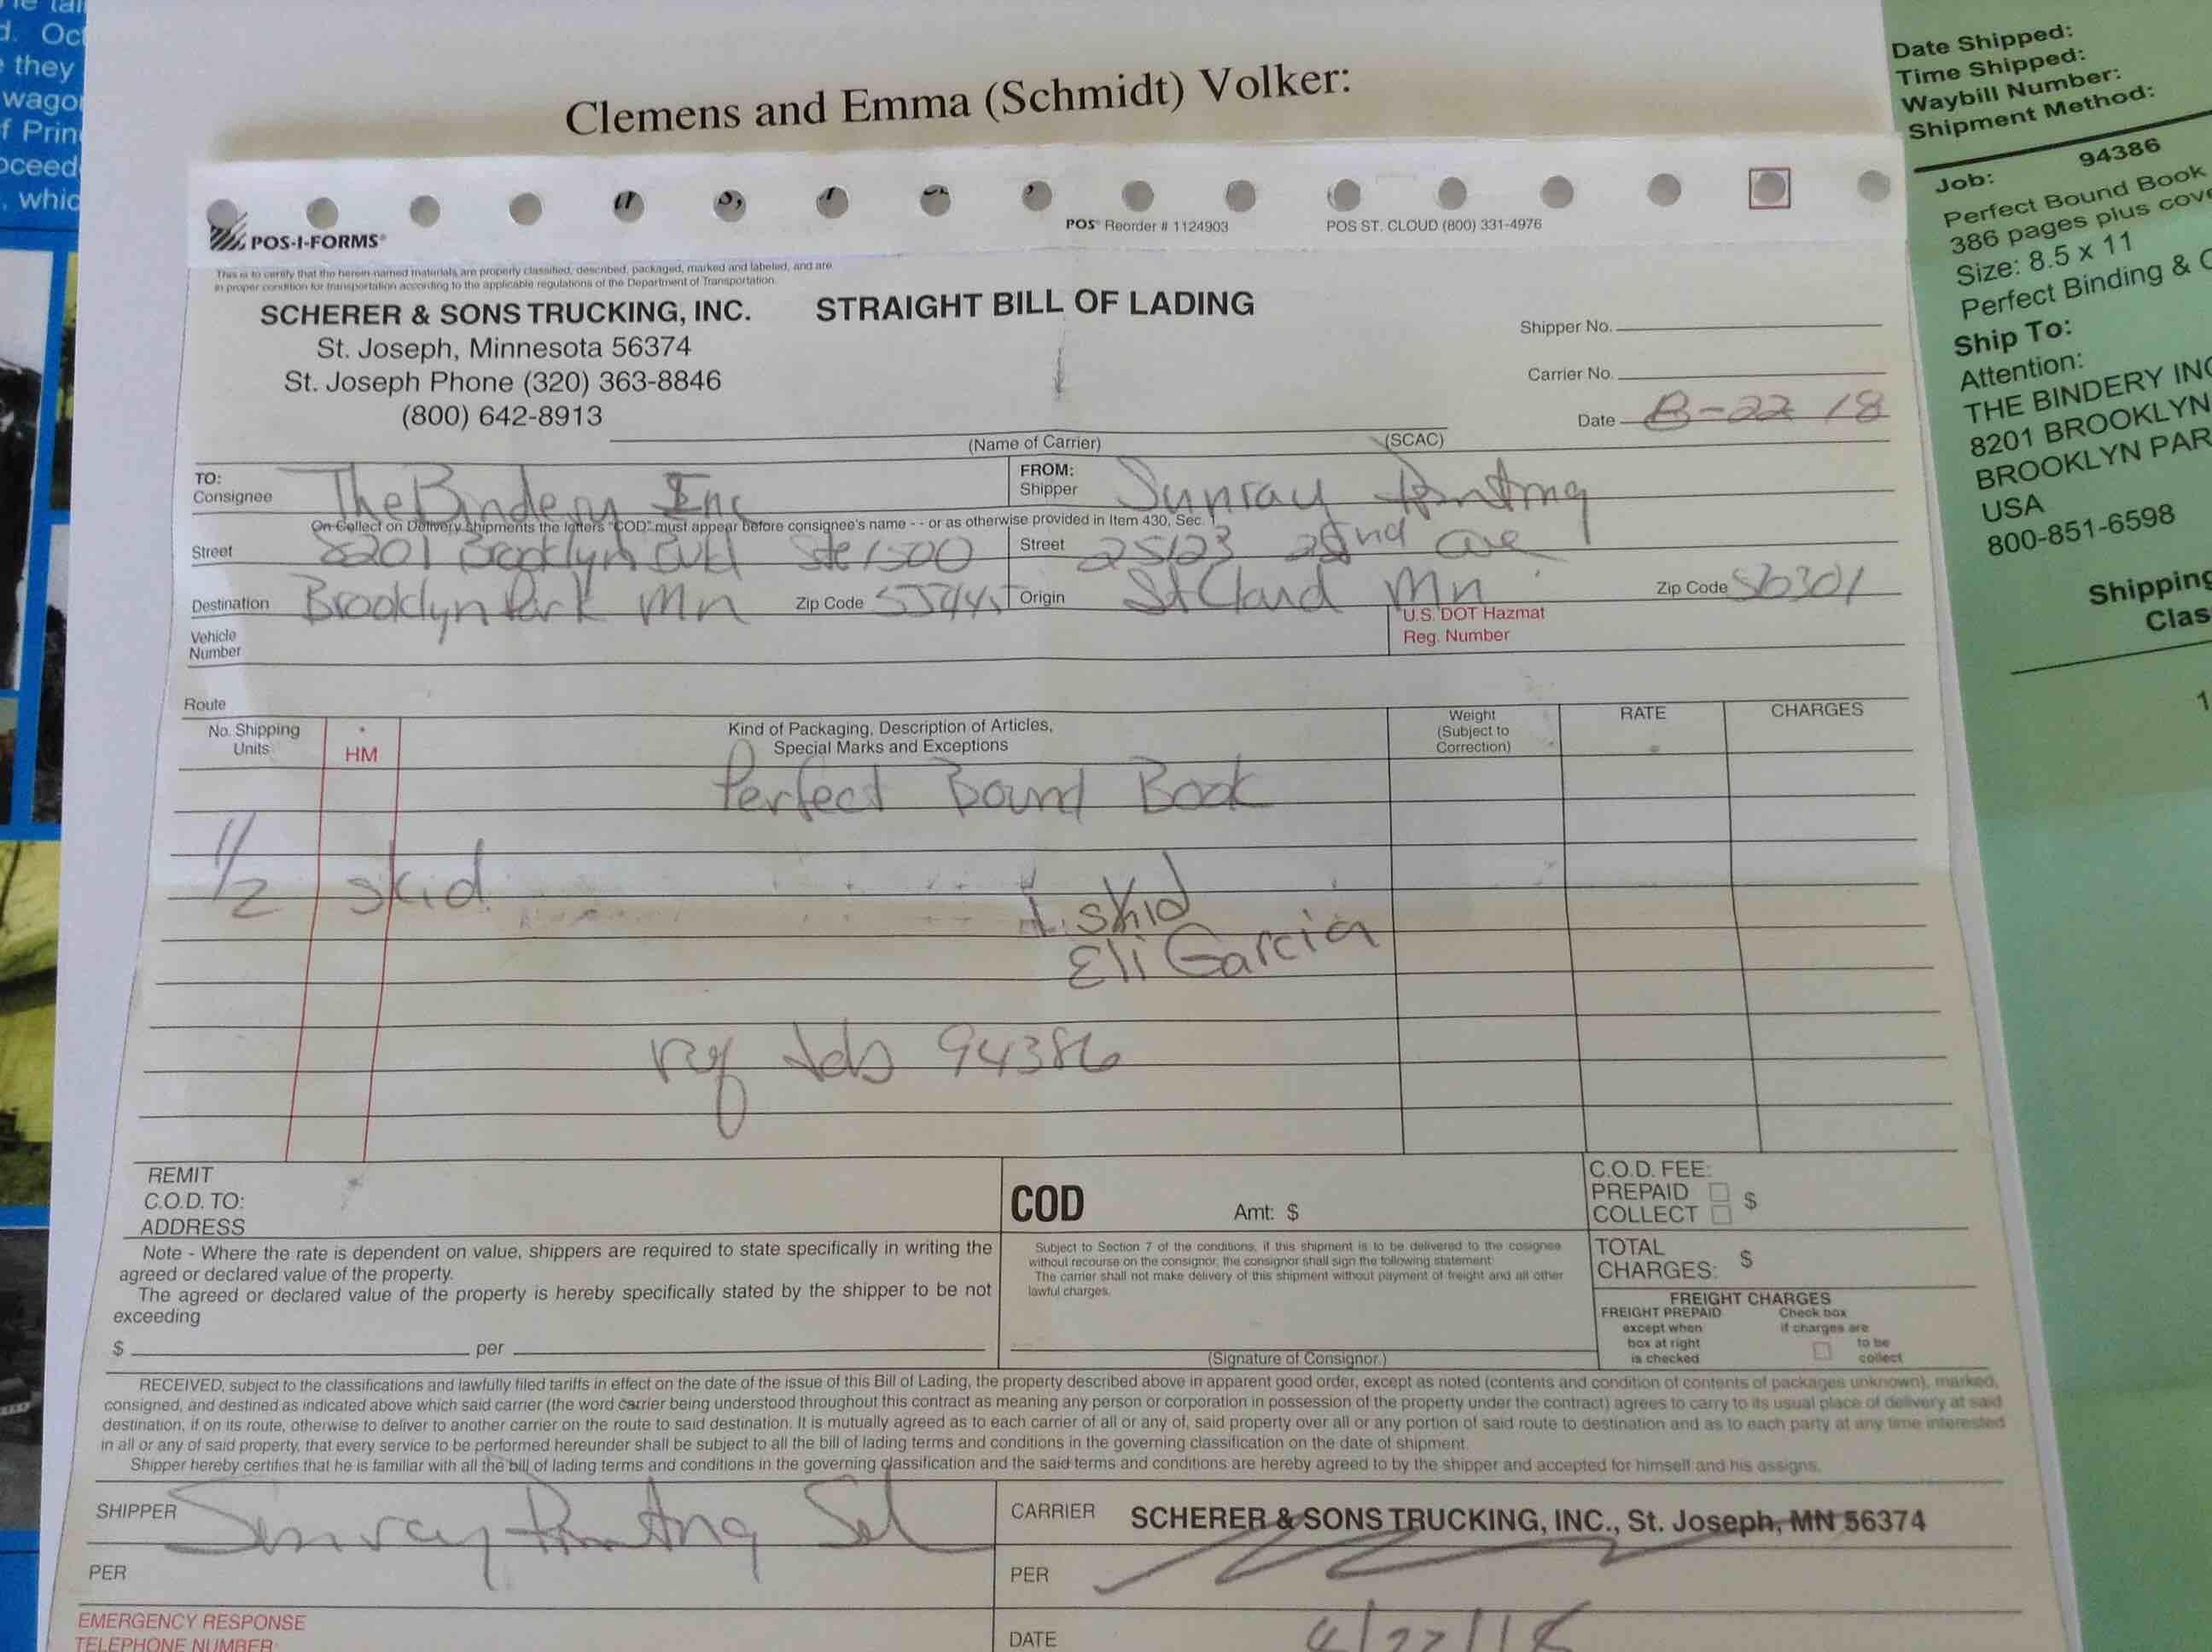 d. Oct
they
wago
f Prin
oceed
, whic
Clemens and Emma (Schmidt) Volker:
POS-I-FORMS®
POS® Reorder # 1124903
POS ST. CLOUD (800) 331-4976
This is to certify that the herein named materials are properly classified, described, packaged, marked and labeled, and are
in proper condition for transportation according to the applicable regulations of the Department of Transportation.
SCHERER & SONS TRUCKING, INC.
STRAIGHT BILL OF LADING
St. Joseph, Minnesota 56374
St. Joseph Phone (320) 363-8846
(800) 642-8913
Shipper No.
Carrier No.
Date -22 18
(Name of Carrier)
(SCAC)
TO:
Consignee The Bindery Inc
FROM:
Shipper Sunray Printing
On Collect on Delivery Shipments the letters "COD" must appear before consignee's name - - or as otherwise provided in Item 430, Sec. 1
Street 8201 Brooklyn Blvd Ste 1500
Street 25123 22nd ave
Destination Brooklyn Park Mn Zip Code 55445
Origin St Cloud Mn Zip Code 56301
Vehicle
Number
U.S. DOT Hazmat
Reg. Number
Route
No. Shipping
Units
*
HM
Kind of Packaging, Description of Articles,
Special Marks and Exceptions
Weight
(Subject to
Correction)
RATE
CHARGES
Perfect Bound Book
1/2 skid
1 skid
Eli Garcia
94386
REMIT
C.O.D. TO:
ADDRESS
COD
Amt: $
C.O.D. FEE:
PREPAID
COLLECT
$
Note - Where the rate is dependent on value, shippers are required to state specifically in writing the
agreed or declared value of the property.
The agreed or declared value of the property is hereby specifically stated by the shipper to be not
exceeding
$ per
Subject to Section 7 of the conditions, if this shipment is to be delivered to the cosignee
without recourse on the consignor, the consignor shall sign the following statement:
The carrier shall not make delivery of this shipment without payment of freight and all other
lawful charges.
(Signature of Consignor.)
TOTAL
CHARGES: $
FREIGHT CHARGES
FREIGHT PREPAID
except when
box at right
is checked
Check box
if charges are
to be
collect
RECEIVED, subject to the classifications and lawfully filed tariffs in effect on the date of the issue of this Bill of Lading, the property described above in apparent good order, except as noted (contents and condition of contents of packages unknown), marked,
consigned, and destined as indicated above which said carrier (the word carrier being understood throughout this contract as meaning any person or corporation in possession of the property under the contract) agrees to carry to its usual place of delivery at said
destination, if on its route, otherwise to deliver to another carrier on the route to said destination. It is mutually agreed as to each carrier of all or any of, said property over all or any portion of said route to destination and as to each party at any time interested
in all or any of said property, that every service to be performed hereunder shall be subject to all the bill of lading terms and conditions in the governing classification on the date of shipment.
Shipper hereby certifies that he is familiar with all the bill of lading terms and conditions in the governing classification and the said terms and conditions are hereby agreed to by the shipper and accepted for himself and his assigns.
SHIPPER Sunray Printing
PER
CARRIER SCHERER & SONS TRUCKING, INC., St. Joseph, MN 56374
PER
EMERGENCY RESPONSE
TELEPHONE NUMBER
DATE
Date Shipped:
Time Shipped:
Waybill Number:
Shipment Method:
Job: 94386
Perfect Bound Book
386 pages plus cov
Size: 8.5 x 11
Perfect Binding &
Ship To:
Attention:
THE BINDERY INC
8201 BROOKLYN
BROOKLYN PAR
USA
800-851-6598
Shipping
Clas